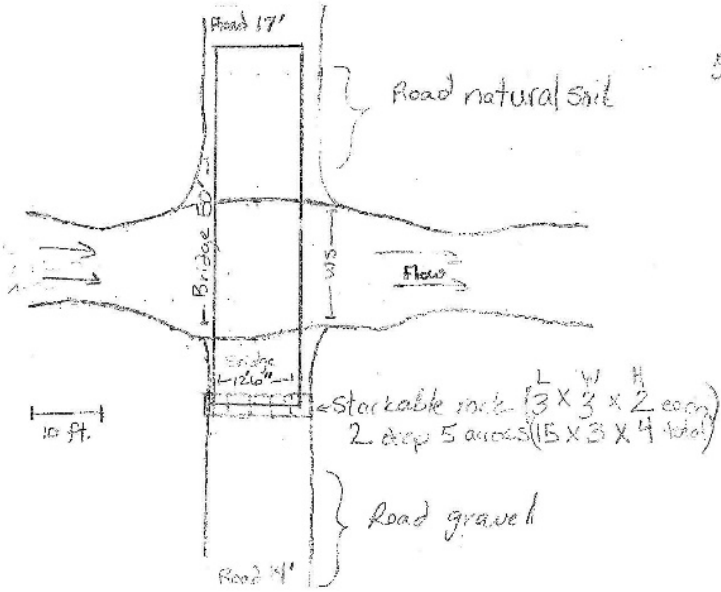 Road 17'
Road natural soil
Bridge 50'
Flow
Bridge
12'6"
L W H
Stackable rock (3 x 3 x 2 each)
2 deep 5 across (15 x 3 x 4 total)
10 ft.
Road gravel
Road 14'